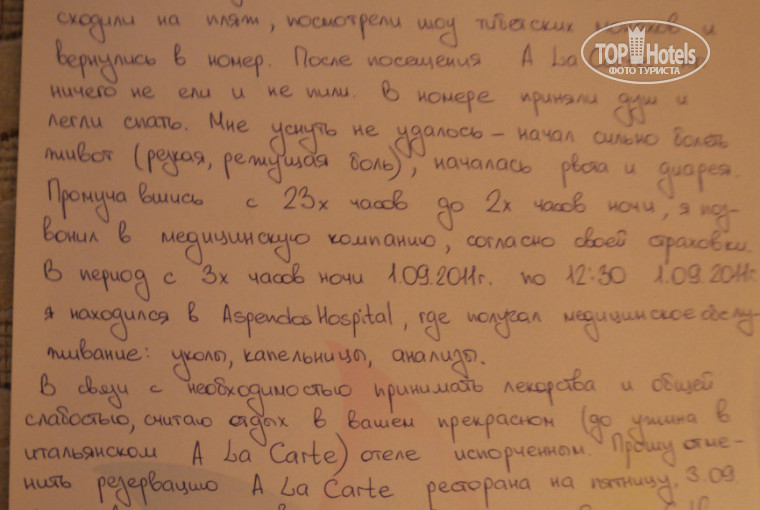 сходили на пляж, посмотрели шоу тибетских монахов и
вернулись в номер. После посещения A La
ничего не ели и не пили. В номере приняли душ и
легли спать. Мне уснуть не удалось – начал сильно болеть
живот (резкая, режущая боль), началась рвота и диарея.
Промучавшись с 23х часов до 2х часов ночи, я поз-
вонил в медицинскую компанию, согласно своей страховки.
В период с 3х часов ночи 1.09.2011г. по 12:30 1.09.2011г.
я находился в Aspendos Hospital, где получал медицинское обслу-
живание: уколы, капельницы, анализы.
В связи с необходимостью принимать лекарства и общей
слабостью, считаю отдых в вашем прекрасном (до ужина в
итальянском A La Carte) отеле испорченным. Прошу отме-
нить резервацию A La Carte ресторана на пятницу, 3.09.
TOP Hotels
ФОТО ТУРИСТА